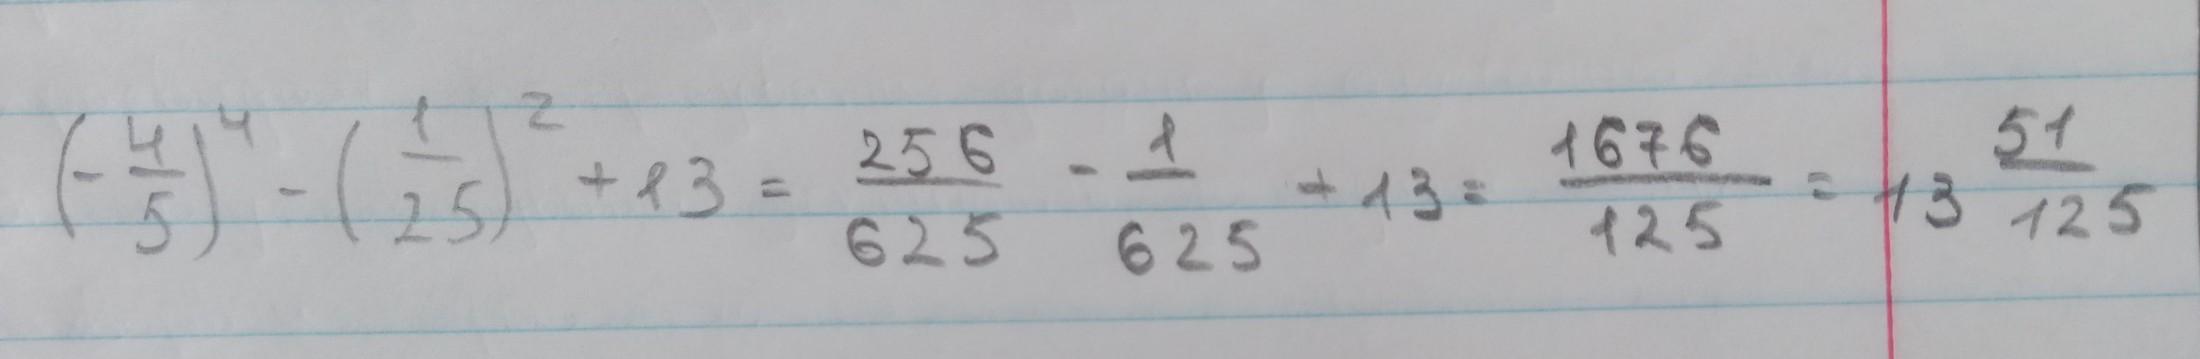 (-4/5)^4 - (1/25)^2 + 13 = 256/625 - 1/625 + 13 = 1676/125 = 13 51/125